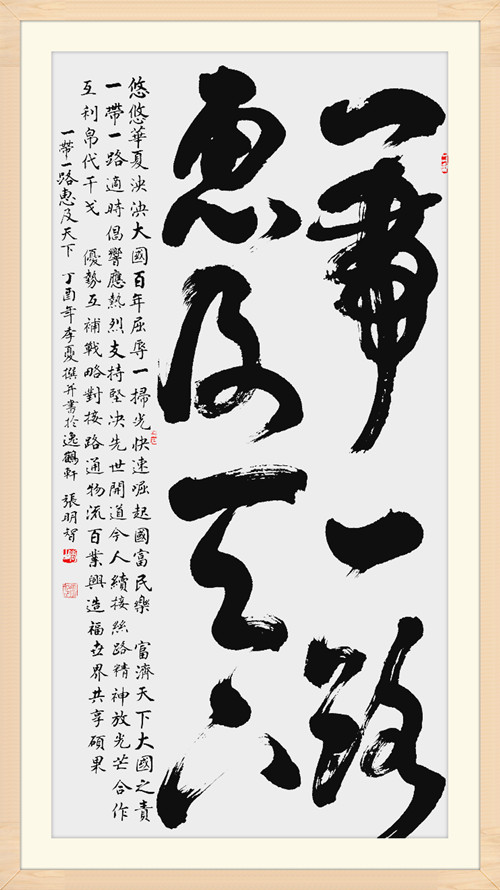 一帶一路
惠及天下
悠悠華夏泱泱大國百年屈辱一掃光快速崛起國富民樂 富濟天下大國之責
一帶一路適時倡響應熱烈支持堅決先世開道今人續接絲路精神放光芒合作
互利帛代干戈 優勢互補戰略對接路通物流百業興造福世界共享碩果
一帶一路惠及天下 丁酉年季夏撰并書於逸鶴軒 張明智